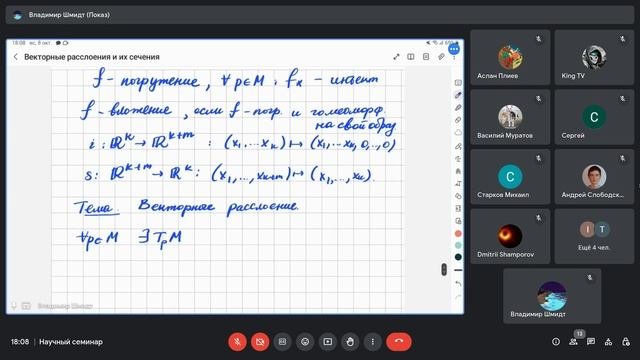 Владимир Шмидт (Показ)
18:08 вс, 8 окт.
Векторные расслоения и их сечения
f - погружение, ∀ p∈M : f* - инъект
f - вложение, если f - погр. и гомеоморф. на свой образ
i : ℝᵏ → ℝᵏ⁺ᵐ : (x₁,...xₖ) ↦ (x₁,...xₖ,0,..,0)
s : ℝᵏ⁺ᵐ → ℝᵏ : (x₁,...,xₖ₊ₘ) ↦ (x₁,...,xₖ).
Тема. Векторное расслоение.
∀p∈M ∃ TₚM
Владимир Шмидт
Аслан Плиев
King TV
Василий Муратов
С
Сергей
С
Старков Михаил
Андрей Слободск...
Dmitrii Shamporov
I T
Ещё 4 чел.
Владимир Шмидт
18:08 | Научный семинар
13